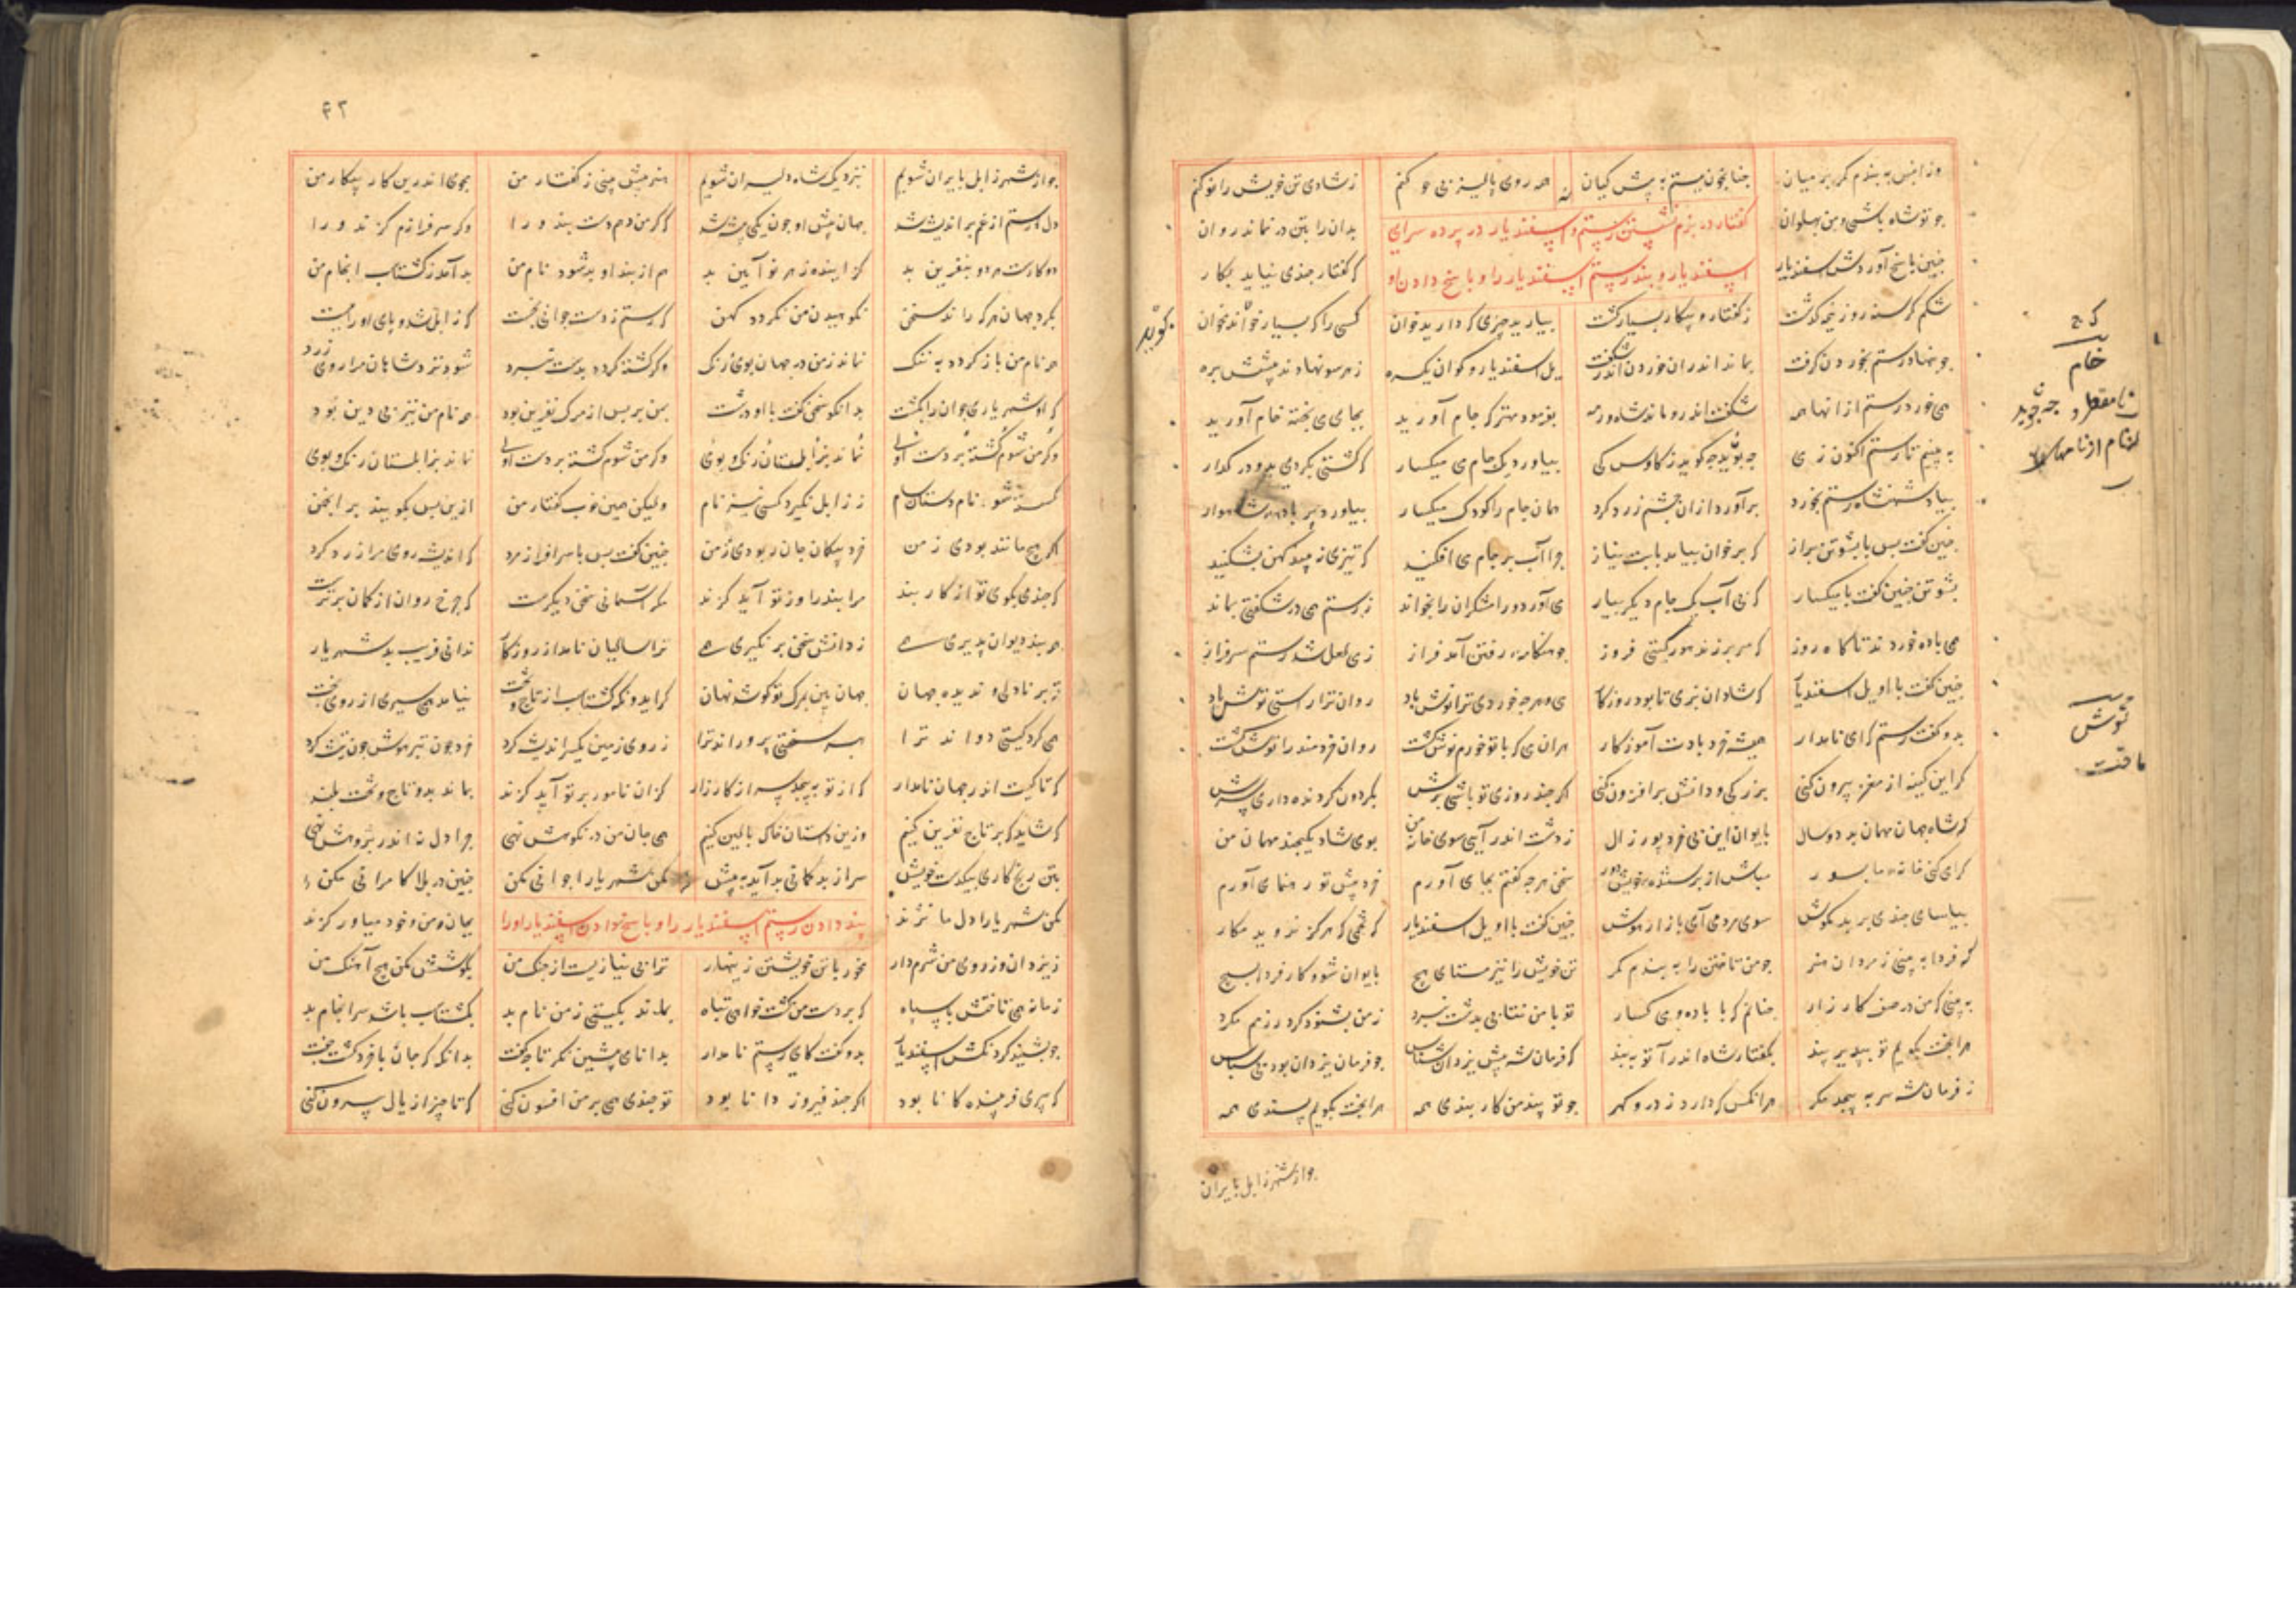 وزانپس به بندم کمر بر میان چنانچون ببستم به پیش کیان همه روی پالیز بی خو کنم ز شادی تن خویش را نو کنم
چو تو شاه باشی و من پهلوان بدان را بتن در نماند روان
گفتار در بزم نشستن رستم و اسپفندیار در پرده سرای
چنین پاسخ آوردش اسفندیار که گفتار چندی نیاید بکار
اسپفندیار و پند رستم اسپفندیار را و پاسخ دادن او
شکم گرسنه روز نیمه گذشت ز گفتار و پیکار بسیار گشت بیارید چیزی که دارید خوان کسی را که بسیار خواند مخوان
چو بنهاد رستم بخوردن گرفت بماند اندران خوردن اندر شگفت یل اسفندیار و گوان یکسره ز هر سو نهادند پیشش بره
می خورد رستم ازانها همه شگفت اندرو ماند شاه و رمه بفرمود مهتر که جام آورید بجای می پخته خام آورید
به بینیم تا رستم اکنون ز می چه جوید چه گوید ز کاوس کی بیاورد یک جام می میگسار که کشتی بکردی بدو در گذار
بیاد شهنشاه رستم بخورد برآورد ازان چشمه زرد گرد همان جام را کودک میگسار بیاورد پر باده شاهوار
چنین گفت پس با پشوتن براز که بر خوان بیامد بابت نیاز چرا آب بر جام می افکنی که تیزی نبید کهن بشکنید
پشوتن چنین گفت با میگسار که بی آب یک جام دیگر بیار می آورد و رامشگران را بخواند ز رستم همی در شگفتی بماند
می باده خوردند تا گاه روز که سر بر زند هور گیتی فروز چو هنگامه رفتن آمد فراز ز می لعل شد رستم سرفراز
چنین گفت با او یل اسفندیار که شادان بزی تا بود روزگار می و هرچه خوردی ترا نوش باد روان ترا راستی توش باد
بدو گفت رستم که ای نامدار همیشه خرد بادت آموزگار هران می که با تو خورم نوش گشت روان خردمند را توش گشت
گر این کینه از مغز بیرون کنی بزرگی و دانش برافزون کنی
که شاه جهان مهمان بد دو سال بایوان این بی خرد پور زال ز دشت اندر آیی سوی خان من بوی شاد یکچند مهمان من
سخن هرچه گفتم بجای آورم خرد پیش تو رهنمای آورم
بیاسای چندی و بر بد مکوش سوی مردمی آی و باز آر هوش چنین گفت با او یل اسفندیار که تخمی که هرگز نروید مکار
که فردا به بینی ز مردان هنر چو من تاختن را به بندم کمر تن خویش را نیز مستای هیچ بایوان شو و کار فردا بسیچ
به بینی که من در صف کارزار چنانم که با باده و میگسار تو با من نتابی بدشت نبرد ز من بشنو و گرد رزم مگرد
مرا بخت گویم تو بپذیر پند بگفتار شاه اندر آ تو به بند که فرمان شه پیش یزدان شناس چو فرمان یزدان بود بی سپاس
ز فرمان شه سر به پیچد مگر هر انکس که دارد نژاد و گهر چو تو پند من کار بندی همه مرا بخت گویم پسندی همه
چو از شهر زابل بایران
کج
خام
جه جوید
گوید
توش
۴۲
چو از شهر زابل بایران شویم بنزدیک شاه دلیران شویم هنر پیش بینی ز گفتار من مجوی اندرین کار پیکار من
دل رستم از غم براندیشه شد جهان پیش او چون یکی بیشه شد که گر من دهم دست بند ورا وگر سرفرازم گزند ورا
دو کارست هر دو بنفرین بد گزاینده زهر نو آیین بد هم از بند او بد شود نام من بد آمد ز گشتاسب انجام من
بگرد جهان هرکه راند سخن نکوهیدن من نگردد کهن که رستم ز دست جوانی بخست که زابل شد و پای او را ببست
همه نام من بازگردد به ننگ نماند ز من در جهان بوی و رنگ وگر کشته گردد بدست نبرد شود نزد شاهان مرا روی زرد
که او شهریاری جوان را بکشت بدانکو سخن گفت با او درشت بمن بر پس از مرگ نفرین بود همه نام من نیز بی دین بود
وگر من شوم کشته بر دست اوی نماند بزابلستان رنگ و بوی وگر من شوم کشته بر دست اوی نماند بزابلستان رنگ و بوی
گسسته شود نام دستان سام ز زابل نگیرد کسی نیز نام ولیکن همین خوب گفتار من ازین پس بگویند بر انجمن
اگر هیچ مانند بودی ز من خرد بیگمان جان ربودی ز من چنین گفت پس با سرافراز مرد که اندیشه روی مرا زرد کرد
که چندی بگوی تو از کار بند مرا بند را و ز تو آید گزند مگر آسمانی سخن دیگرست که چرخ روان از گمان برترست
همه بند دیوان پذیری همی ز دانش سخن بر نگیری همی ترا سالیان نامد از روزگار ندانی فریب بد شهریار
تو برنادلی و ندیده جهان جهان بین بمرگ تو کوشد نهان گر ایدونکه گشتاسب از تاج و تخت نیامد همی سیری از روی بخت
همی گرد گیتی دواند ترا بهر سختیی پروراند ترا ز روی زمین یکسر اندیشه کرد خرد چون تبر هوش چون تیشه کرد
که تا کیست اندر جهان نامدار که از تو به پیچد سر از کارزار کزان نامور بر تو آید گزند بماند بدو تاج و تخت بلند
که شاید که بر تاج نفرین کنیم وزین داستان خاک بالین کنیم همی جان من در نکوهش نهی چرا دل نه اندر پژوهش نهی
بتن رنج کاری بیکدست خویش سر از بدگمانی بد آید به پیش مکن شهریارا جوانی مکن چنین در بلا کامرانی مکن
مکن شهریارا دل ما نژند بجان من و خود میاور گزند
پند دادن رستم اسپفندیار را و پاسخ دادن اسپفندیار او را
ز یزدان و ز روی من شرم دار مخور با تن خویشتن زینهار ترا بی نیازیست از جنگ من بکوشش مکن هیچ آهنگ من
زمانه همی تاختش با سپاه که بر دست من گشت خواهی تباه بماند بگیتی ز من نام بد بگشتاسب باشد سرانجام بد
چو بشنید گردنکش اسپفندیار بدو گفت کای رستم نامدار بدانای پیشین نگر تا چه گفت بدانگه که جان با خرد گشت جفت
که پیری فریبنده کانا بود اگر چند فیروز و دانا بود تو چندی همی بر من افسون کنی که تا چنبر از یال بیرون کنی